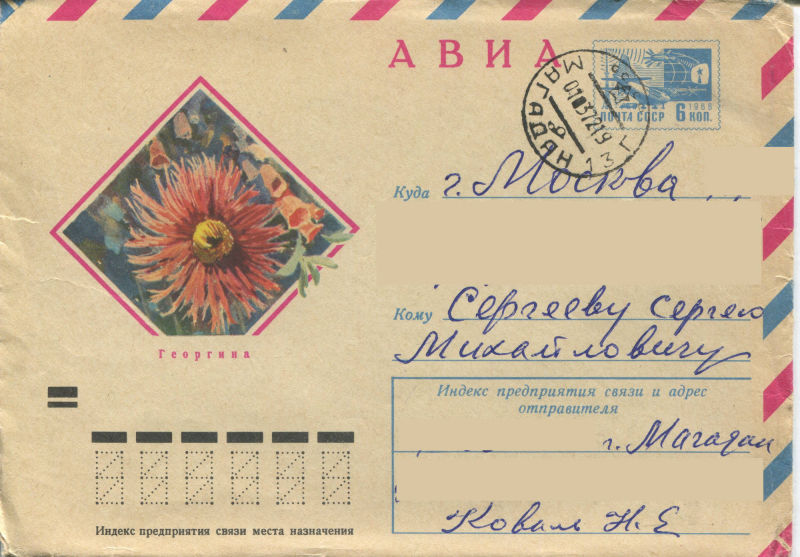 АВИА
1966
ПОЧТА СССР 6 КОП.
МАГАДАН
13 Г
Куда г. Москва
Кому Сергееву Сергею
Михайловичу
Георгина
Индекс предприятия связи и адрес
отправителя
г. Магадан
Коваль Н. Е
Индекс предприятия связи места назначения